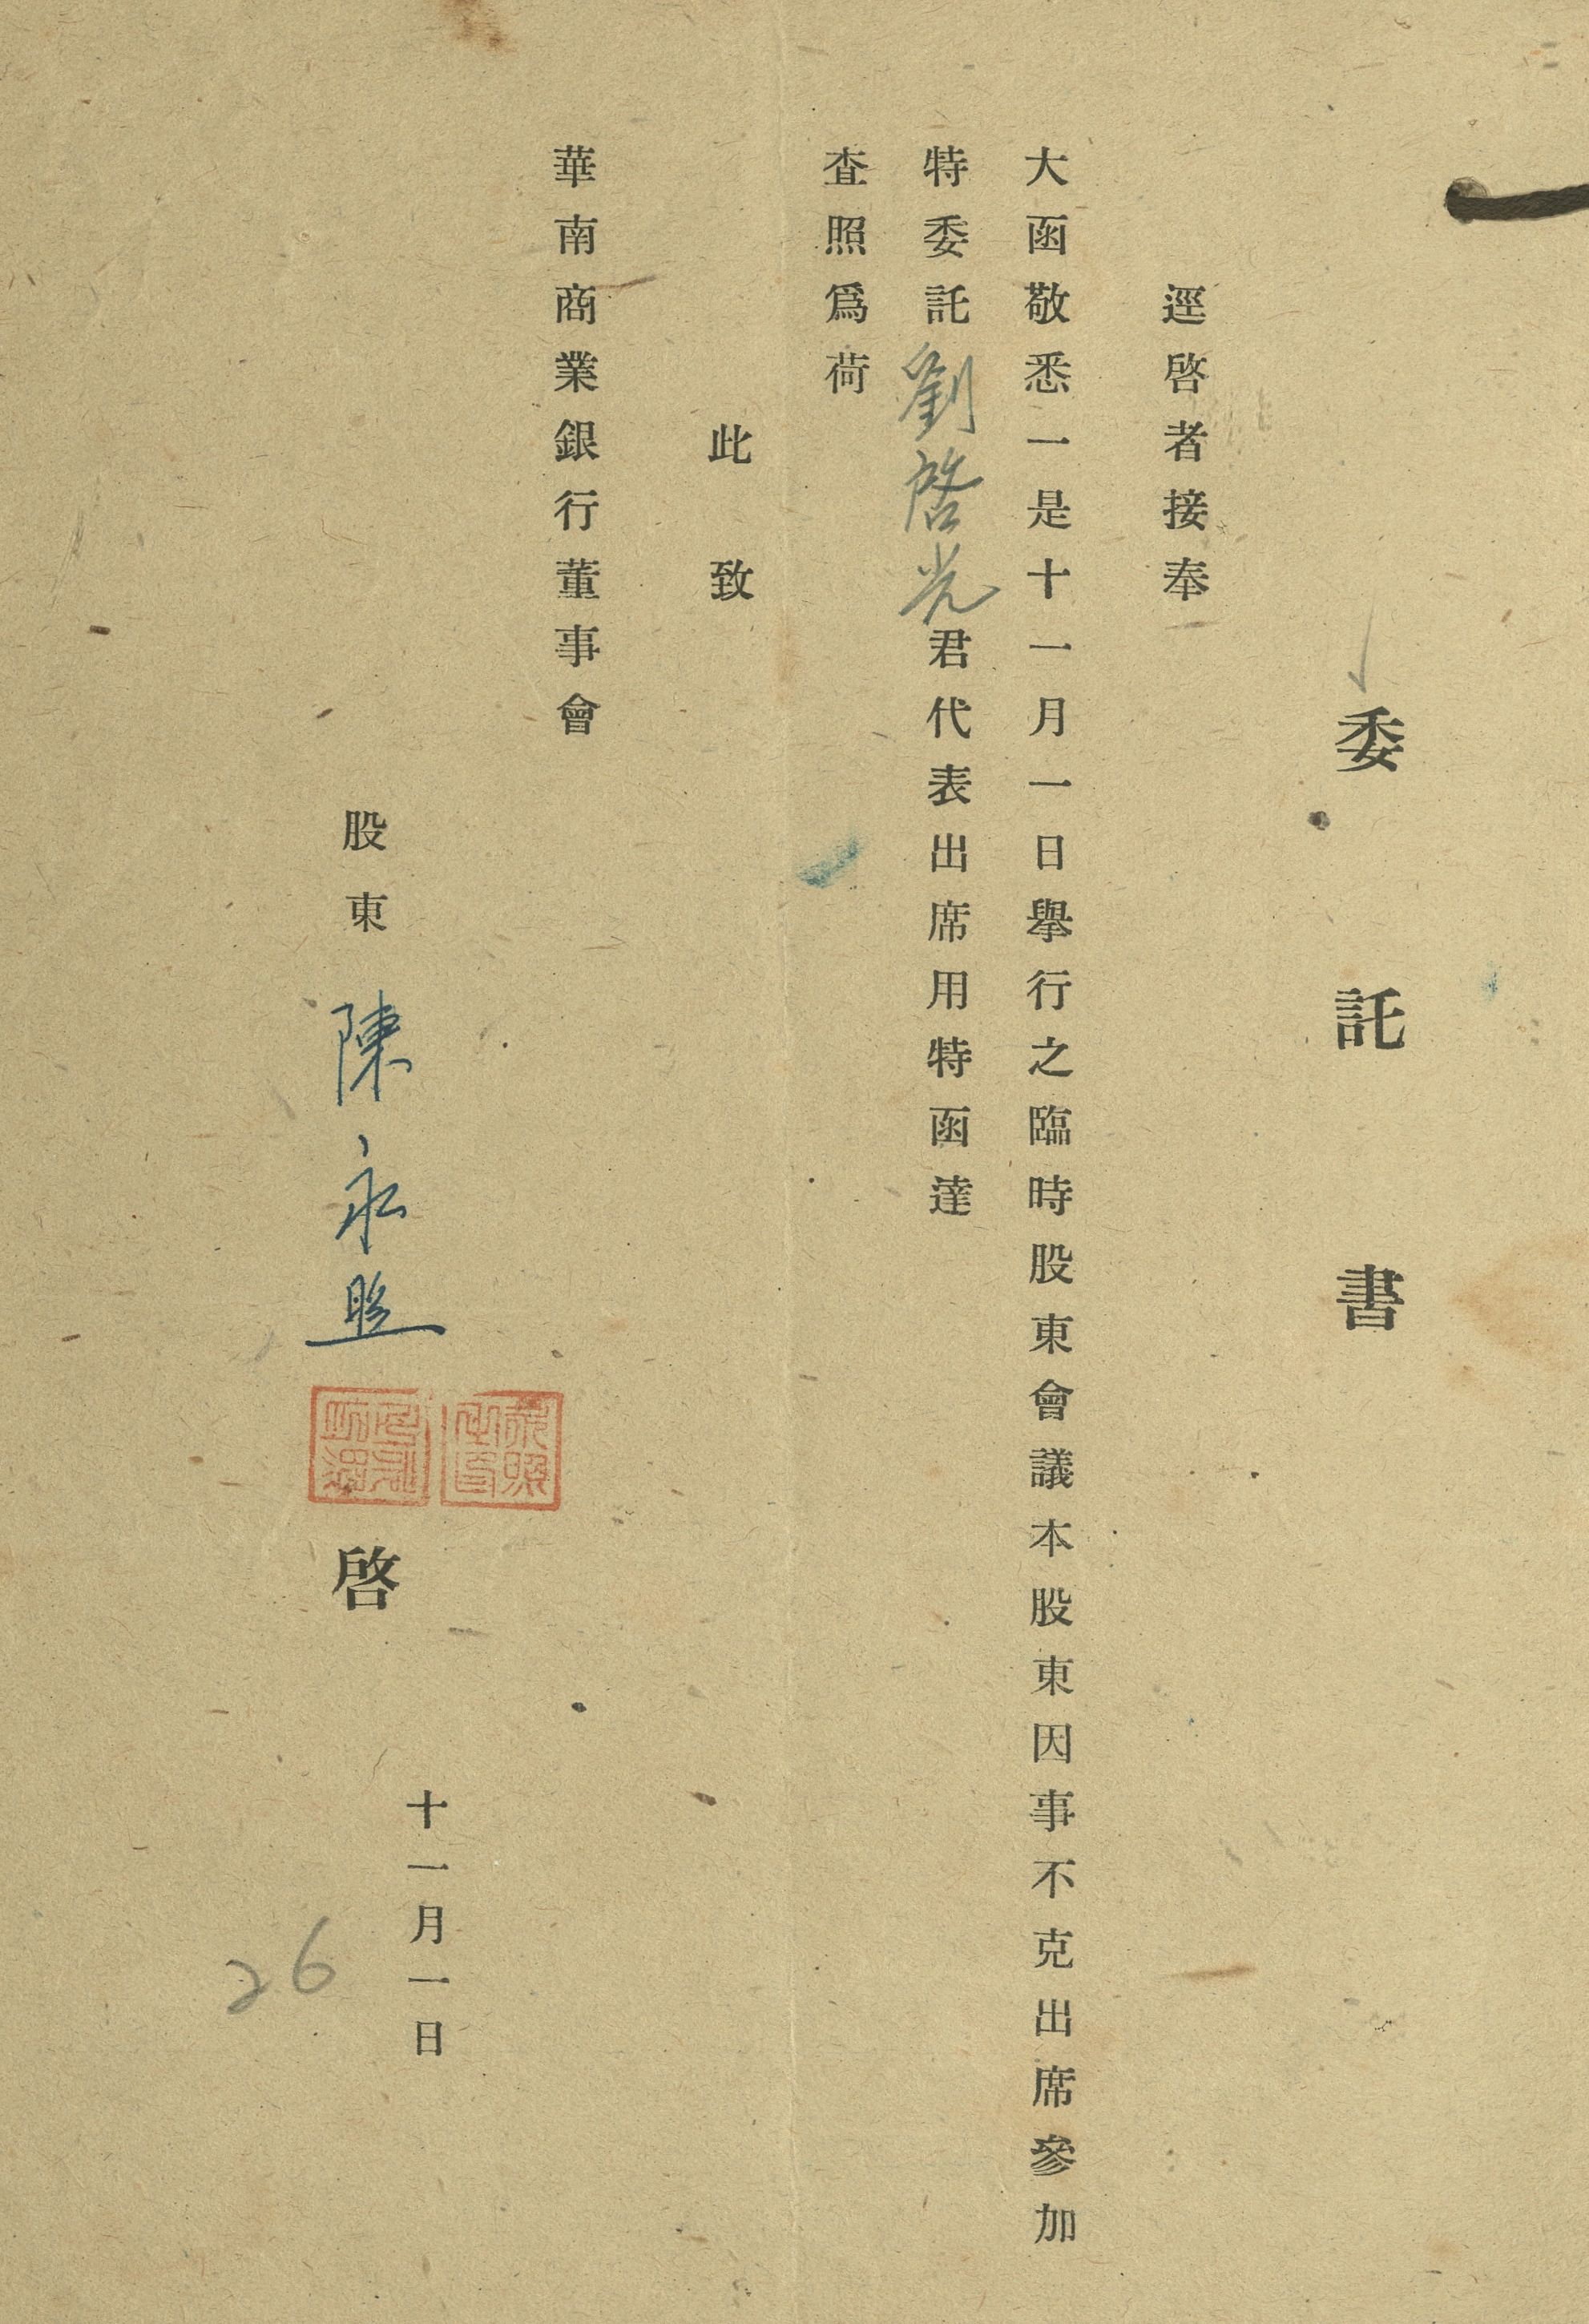 委託書
逕啓者接奉
大函敬悉一是十一月一日擧行之臨時股東會議本股東因事不克出席參加
特委託劉啓光君代表出席用特函達
査照爲荷
此致
華南商業銀行董事會
十一月一日
股東 陳永照 啓
永照
26